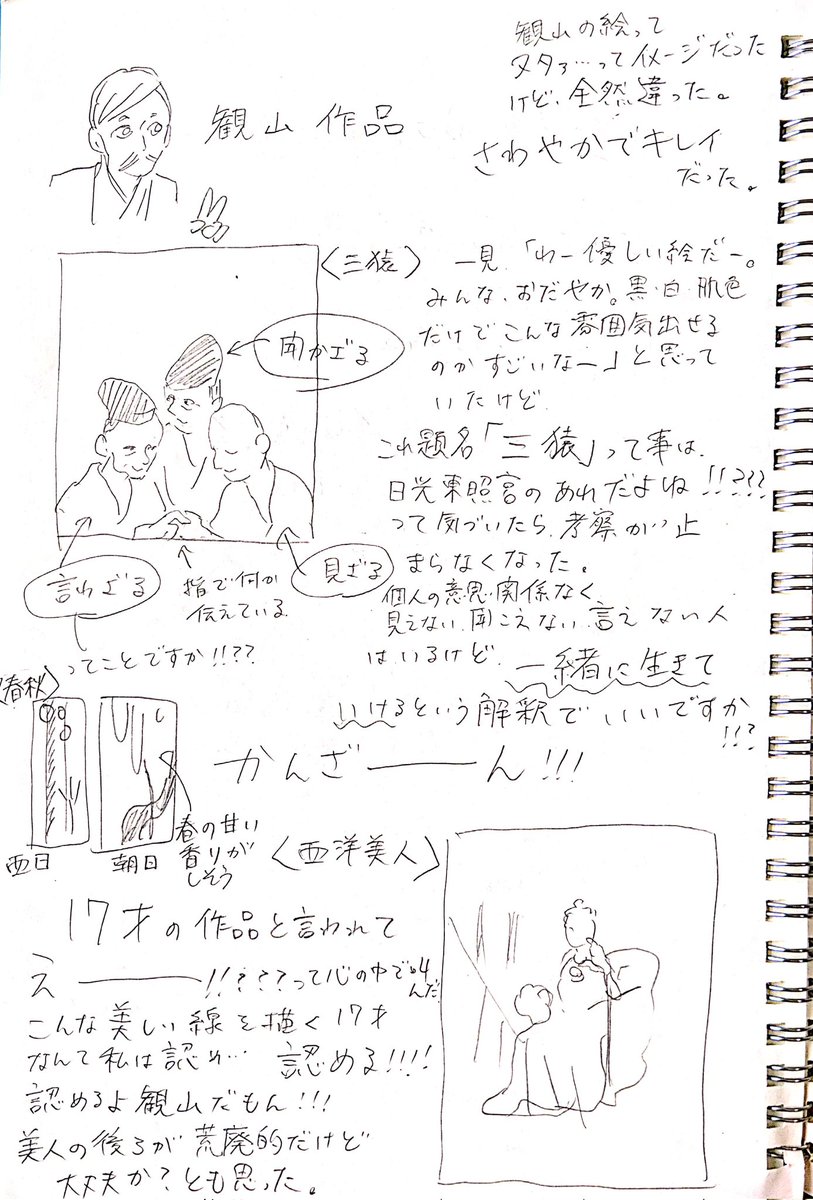 観山の絵って
ヌタァ…ってイメージだった
けど、全然違った。
さわやかでキレイ
だった。
観山 作品
〈三猿〉
一見、「わー優しい絵だー。
みんな、おだやか。黒・白・肌色
だけでこんな雰囲気出せる
のかすごいなー」と思って
いたけど
聞かざる
これ題名「三猿」って事は、
日光東照宮のあれだよね!!???
って気づいたら、考察が止
まらなくなった。
言わざる
指で何か
伝えている
見ざる
ってことですか!!??
個人の意思・関係なく
見えない、聞こえない、言えない人
はいるけど、一緒に生きて
いけるという解釈でいいですか
!!?
〈春秋〉
かんざーーん!!!
西日
朝日
春の甘い
香りが
しそう
〈西洋美人〉
17才の作品と言われて
え———!!????って心の中で叫
んだ
こんな美しい線を描く17才
なんて私は認め… 認める!!!!
認めるよ観山だもん!!!
美人の後ろが荒廃的だけど
大丈夫か?とも思った。